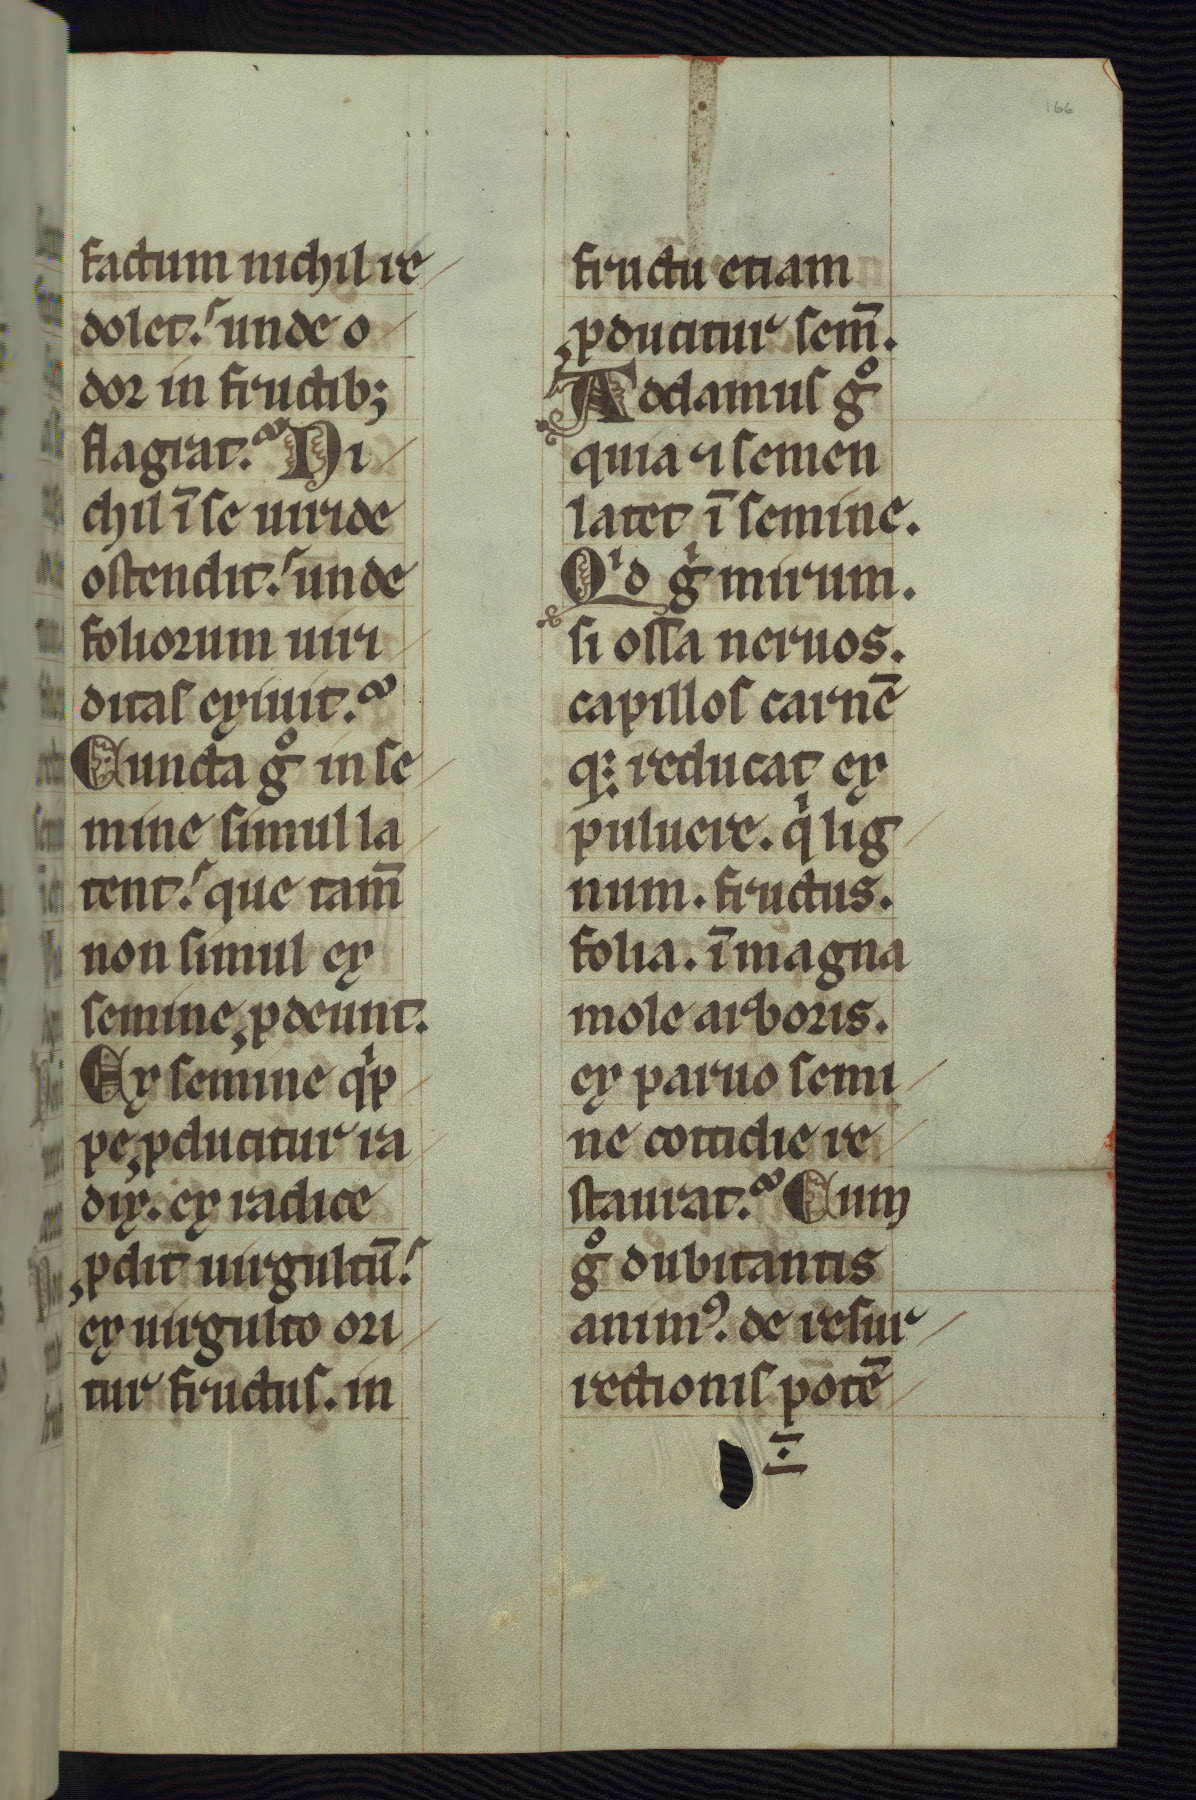 166
factum nichil re
dolet. unde o
dor in fructib;
flagrat. Ni
chil ī se uiride
ostendit. unde
foliorum uiri
ditas exiuit.
Cuncta gͦ in se
mine simul la
tent. que tam̄
non simul ex
semine ꝓdeunt.
Ex semine qͥp
pe ꝓducitur ra
dix. ex radice
ꝓdit uirgultū.
ex uirgulto ori
tur fructus. in
fructu etiam
ꝓducitur sem̄.
Addamus gͦ
quia ⁊ semen
latet ī semine.
Qͥd gͥ mirum.
si ossa neruos.
capillos carnē
qꝫ reducat ex
puluere. qͥ lig
num. fructus.
folia. ī magna
mole arboris.
ex paruo semi
ne cottidie re
staurat. Cum
gͦ dubitantis
animꝰ. de resur
rectionis potē